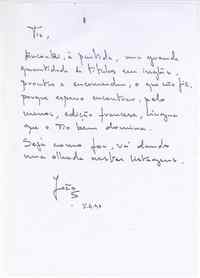 Tio,
Encontrei, à partida, uma grande
quantidade de títulos em inglês,
prontos a encomendar, o que não fiz,
porque espero encontrar, pelo
menos, edição francesa, língua
que o Tio bem domina.
Seja como for, vá dando
uma olhada nestas listagens.
João